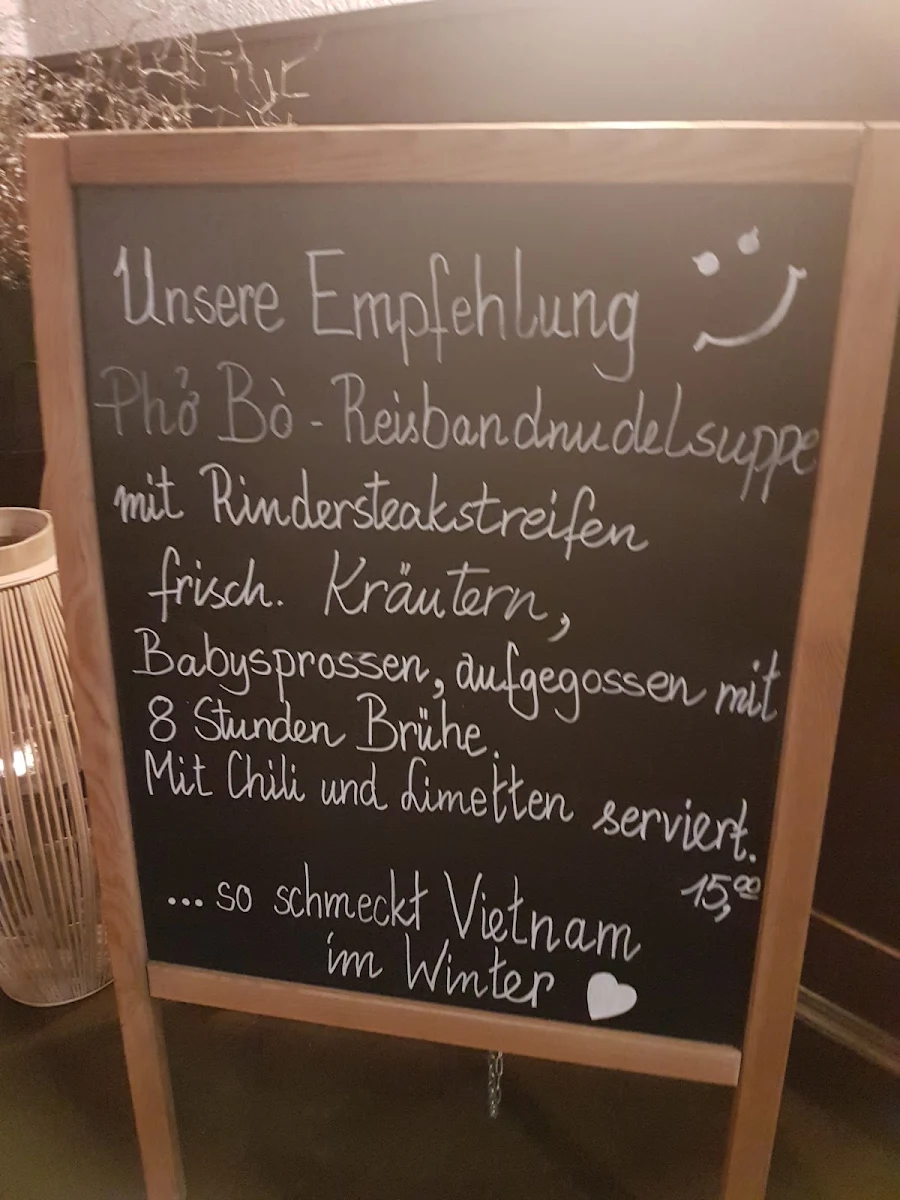 Unsere Empfehlung
Phở Bò - Reisbandnudelsuppe
mit Rindersteakstreifen
frisch. Kräutern,
Babysprossen, aufgegossen mit
8 Stunden Brühe.
Mit Chili und Limetten serviert.
15,00
... so schmeckt Vietnam
im Winter